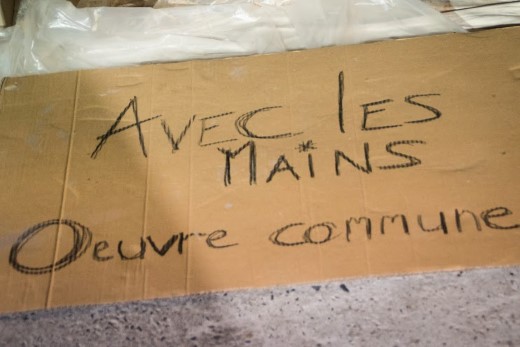 AVEC LES
MAiNS
Oeuvre commune